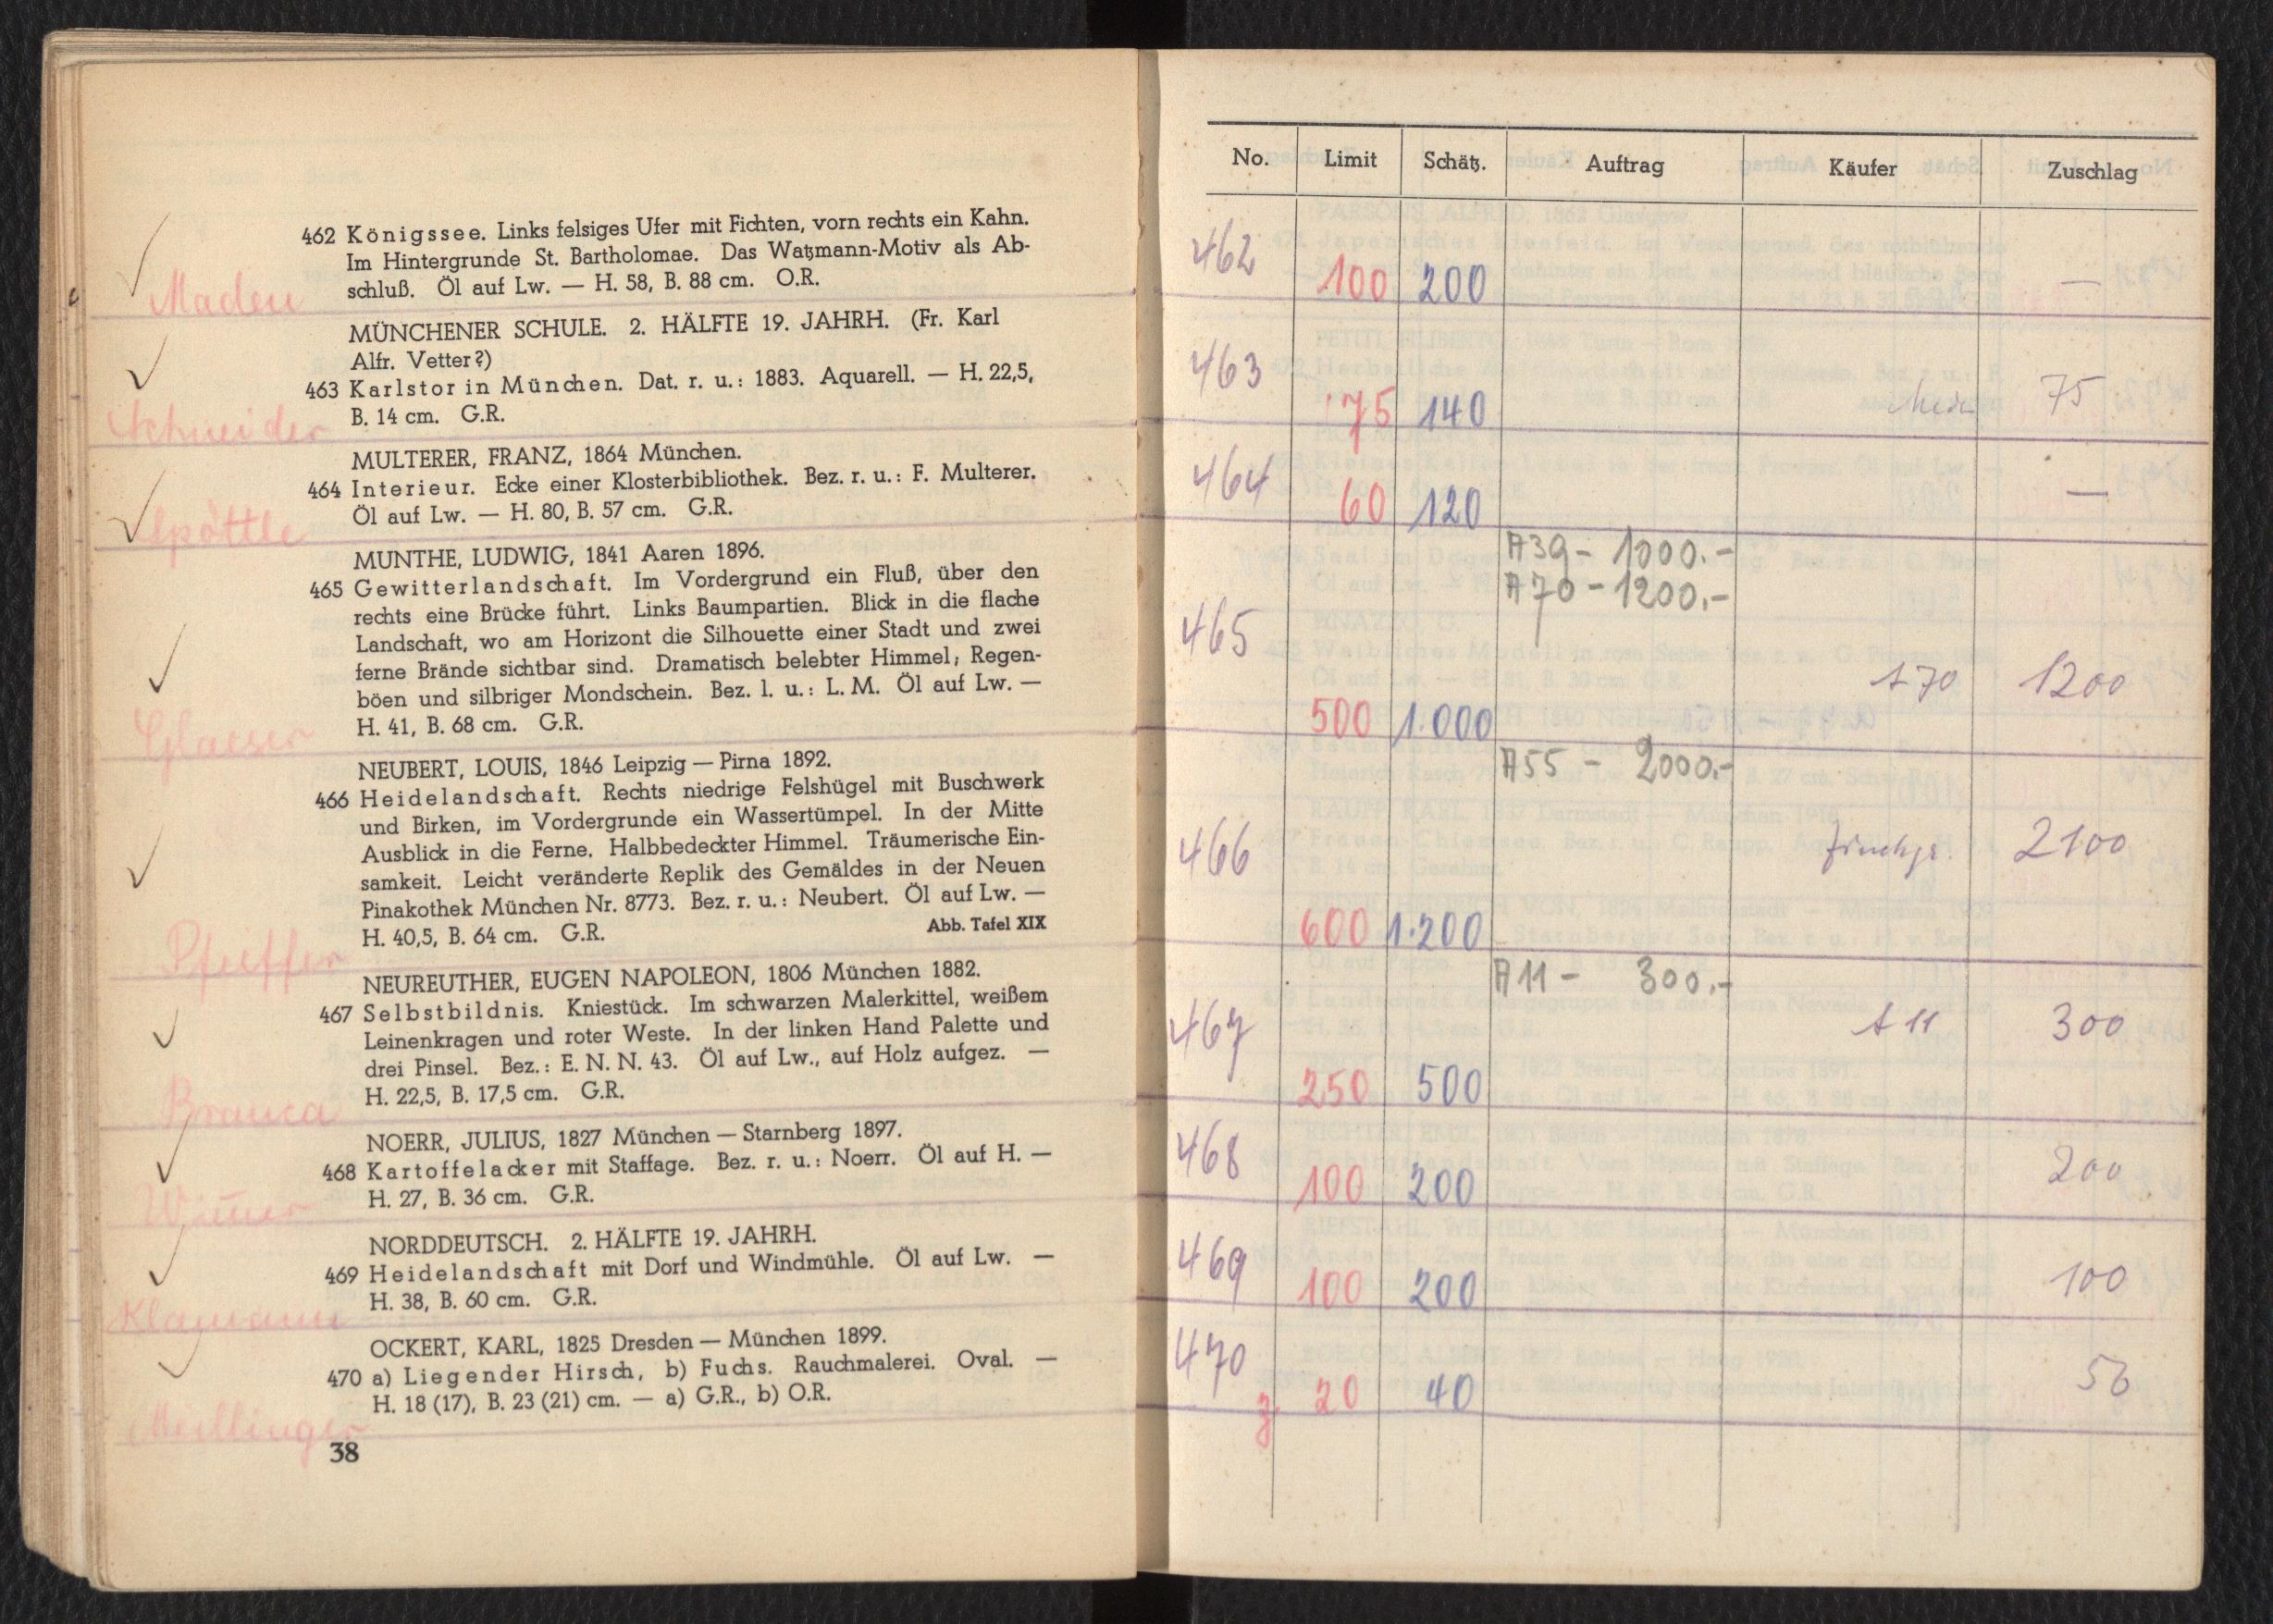 462 Königssee. Links felsiges Ufer mit Fichten, vorn rechts ein Kahn.
Im Hintergrunde St. Bartholomae. Das Watzmann-Motiv als Ab-
schluß. Öl auf Lw. — H. 58, B. 88 cm. O.R.
Maden
MÜNCHENER SCHULE. 2. HÄLFTE 19. JAHRH. (Fr. Karl
Alfr. Vetter?)
463 Karlstor in München. Dat. r. u.: 1883. Aquarell. — H. 22,5,
B. 14 cm. G.R.
Schneider
MULTERER, FRANZ, 1864 München.
464 Interieur. Ecke einer Klosterbibliothek. Bez. r. u.: F. Multerer.
Öl auf Lw. — H. 80, B. 57 cm. G.R.
Spöttle
MUNTHE, LUDWIG, 1841 Aaren 1896.
465 Gewitterlandschaft. Im Vordergrund ein Fluß, über den
rechts eine Brücke führt. Links Baumpartien. Blick in die flache
Landschaft, wo am Horizont die Silhouette einer Stadt und zwei
ferne Brände sichtbar sind. Dramatisch belebter Himmel; Regen-
böen und silbriger Mondschein. Bez. l. u.: L. M. Öl auf Lw. —
H. 41, B. 68 cm. G.R.
Glaeser
NEUBERT, LOUIS, 1846 Leipzig — Pirna 1892.
466 Heidelandschaft. Rechts niedrige Felshügel mit Buschwerk
und Birken, im Vordergrunde ein Wassertümpel. In der Mitte
Ausblick in die Ferne. Halbbedeckter Himmel. Träumerische Ein-
samkeit. Leicht veränderte Replik des Gemäldes in der Neuen
Pinakothek München Nr. 8773. Bez. r. u.: Neubert. Öl auf Lw. —
H. 40,5, B. 64 cm. G.R. Abb. Tafel XIX
Pfeiffer
NEUREUTHER, EUGEN NAPOLEON, 1806 München 1882.
467 Selbstbildnis. Kniestück. Im schwarzen Malerkittel, weißem
Leinenkragen und roter Weste. In der linken Hand Palette und
drei Pinsel. Bez.: E. N. N. 43. Öl auf Lw., auf Holz aufgez. —
H. 22,5, B. 17,5 cm. G.R.
Branca
NOERR, JULIUS, 1827 München — Starnberg 1897.
468 Kartoffelacker mit Staffage. Bez. r. u.: Noerr. Öl auf H. —
H. 27, B. 36 cm. G.R.
NORDDEUTSCH. 2. HÄLFTE 19. JAHRH.
469 Heidelandschaft mit Dorf und Windmühle. Öl auf Lw. —
H. 38, B. 60 cm. G.R.
Klamann
OCKERT, KARL, 1825 Dresden — München 1899.
470 a) Liegender Hirsch, b) Fuchs. Rauchmalerei. Oval. —
H. 18 (17), B. 23 (21) cm. — a) G.R., b) O.R.
Meillinger
38
No. Limit Schätz. Auftrag Käufer Zuschlag
462 100 200 —
463 75 140 75
464 60 120 —
A39 - 1000.-
A70 - 1200.-
465 500 1.000 A70 1200
A55 - 2000.-
466 600 1.200 2100
A11 - 300.-
467 250 500 A11 300
468 100 200 200
469 100 200 100
470 20 40